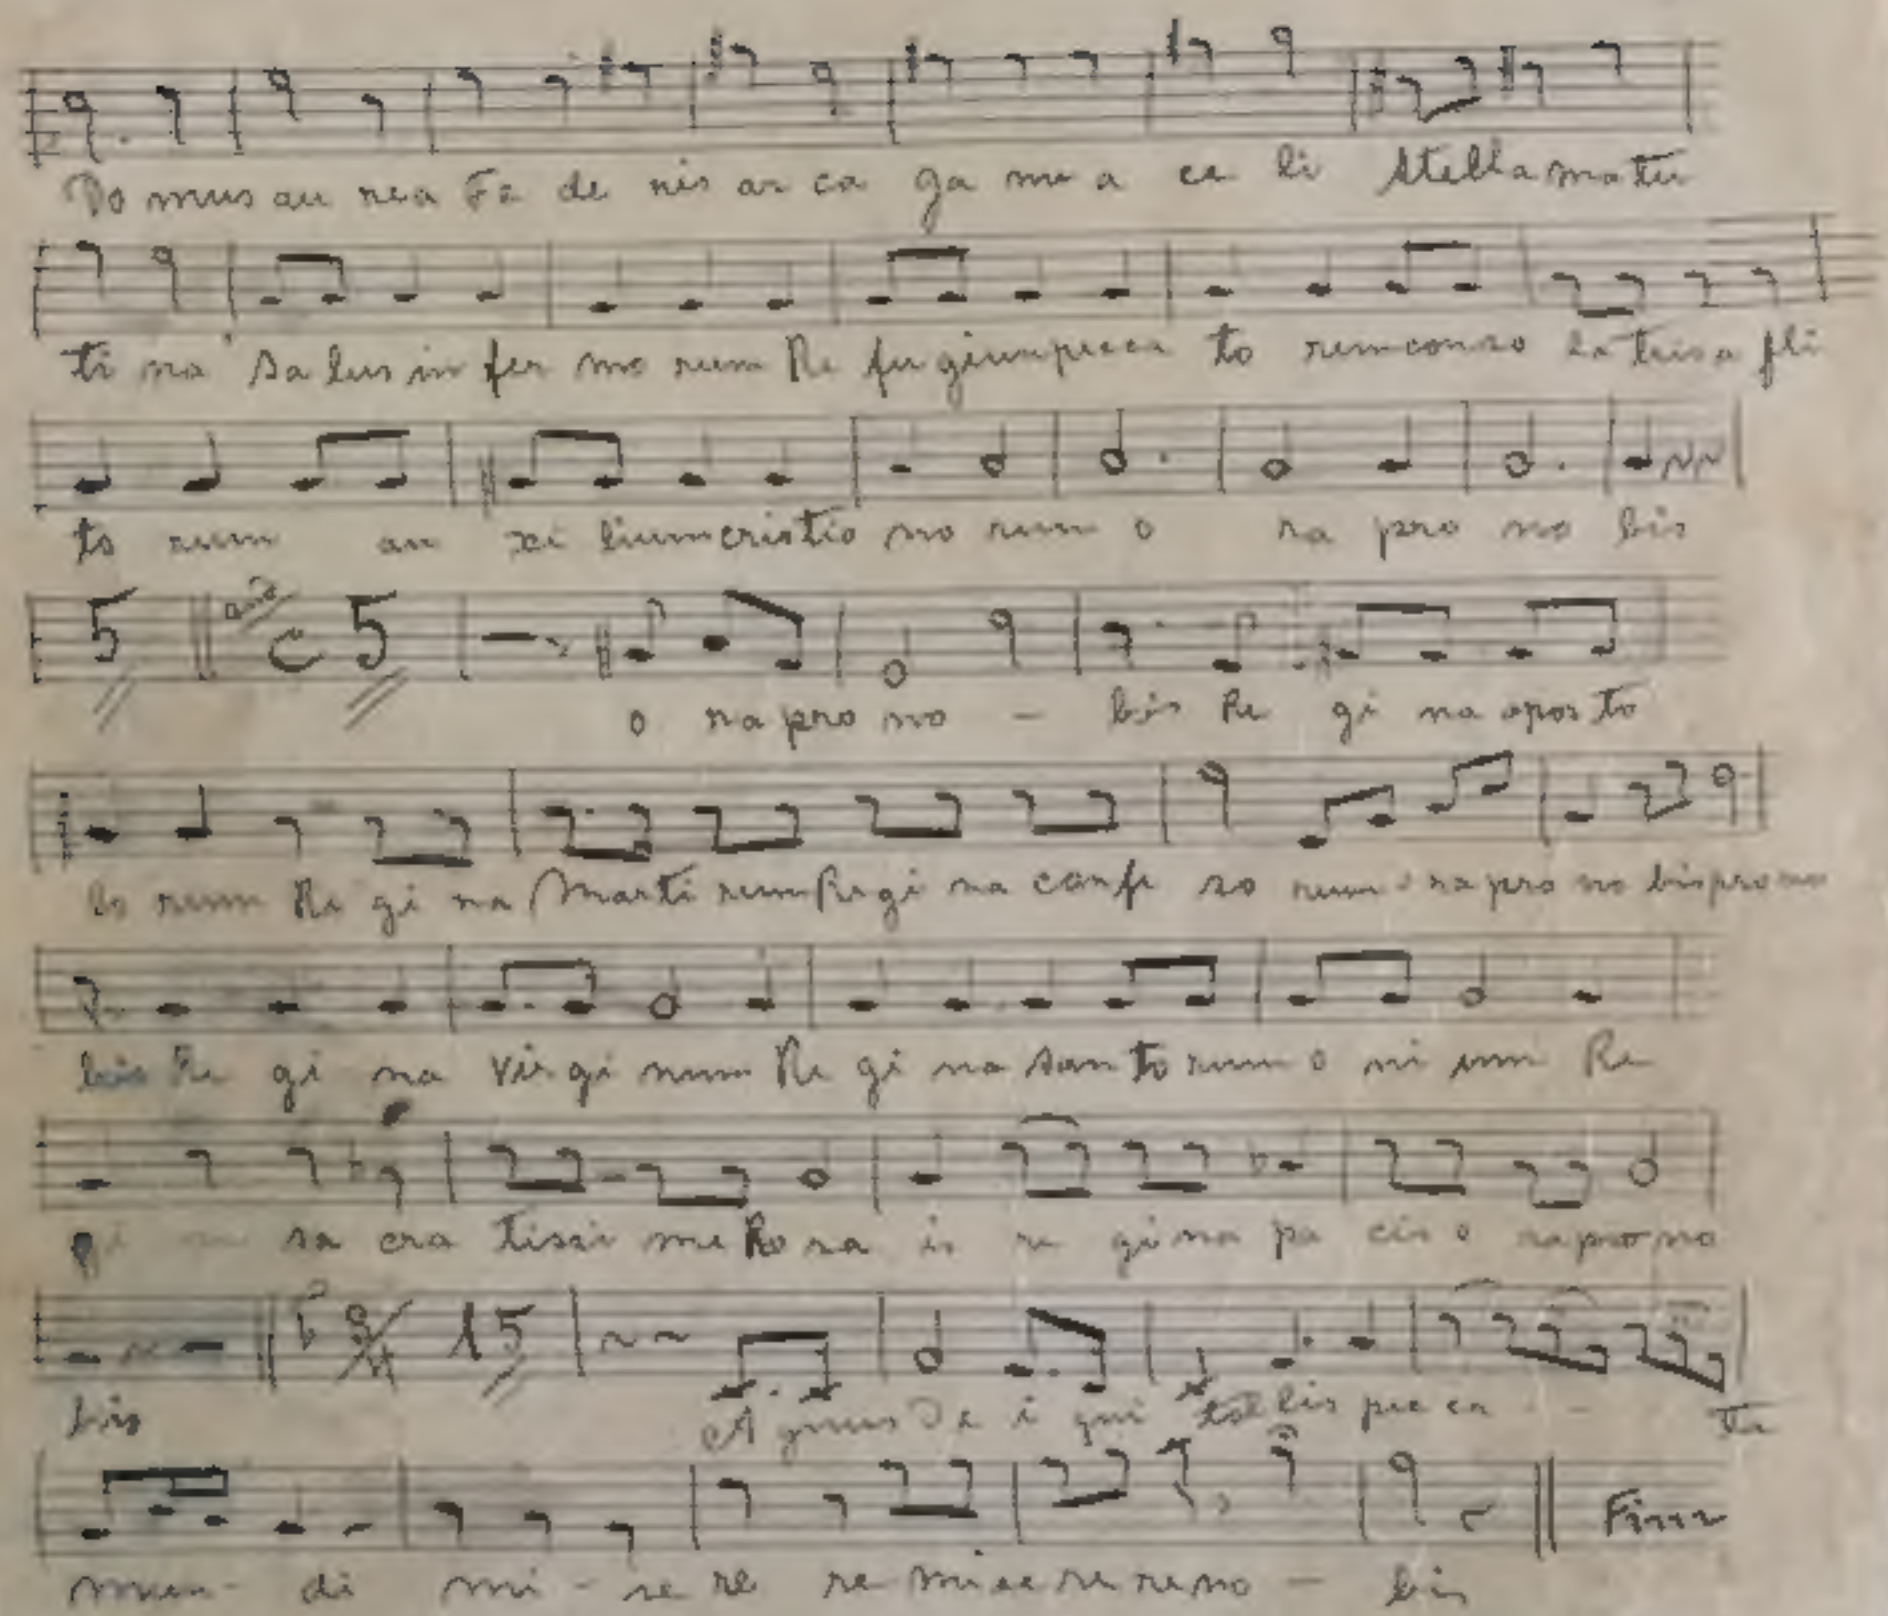 Do mus au rea Fe de ris ar ca ga nu a ce li Stella matu
ti na Sa lus in fer mo rum Re fu gium pecca to rum conso la trisa fli
to rum au xi lium cristia no rum o ra pro no bis
5 C 5
o ra pro no - bis Re gi na apos to
lo rum Re gi na Marti rum Regi na confe so rum o ra pro no bis pro no
bis Re gi na Vir gi num Re gi na San to rum o ni um Re
gi sa cra tissi me Ro sa is re gi na pa cis o ra pro no
bis A gnus De i qui tol lis pec ca - - ta
3/4 15
mun - di mi - se re re mise re re no - bis
Fim